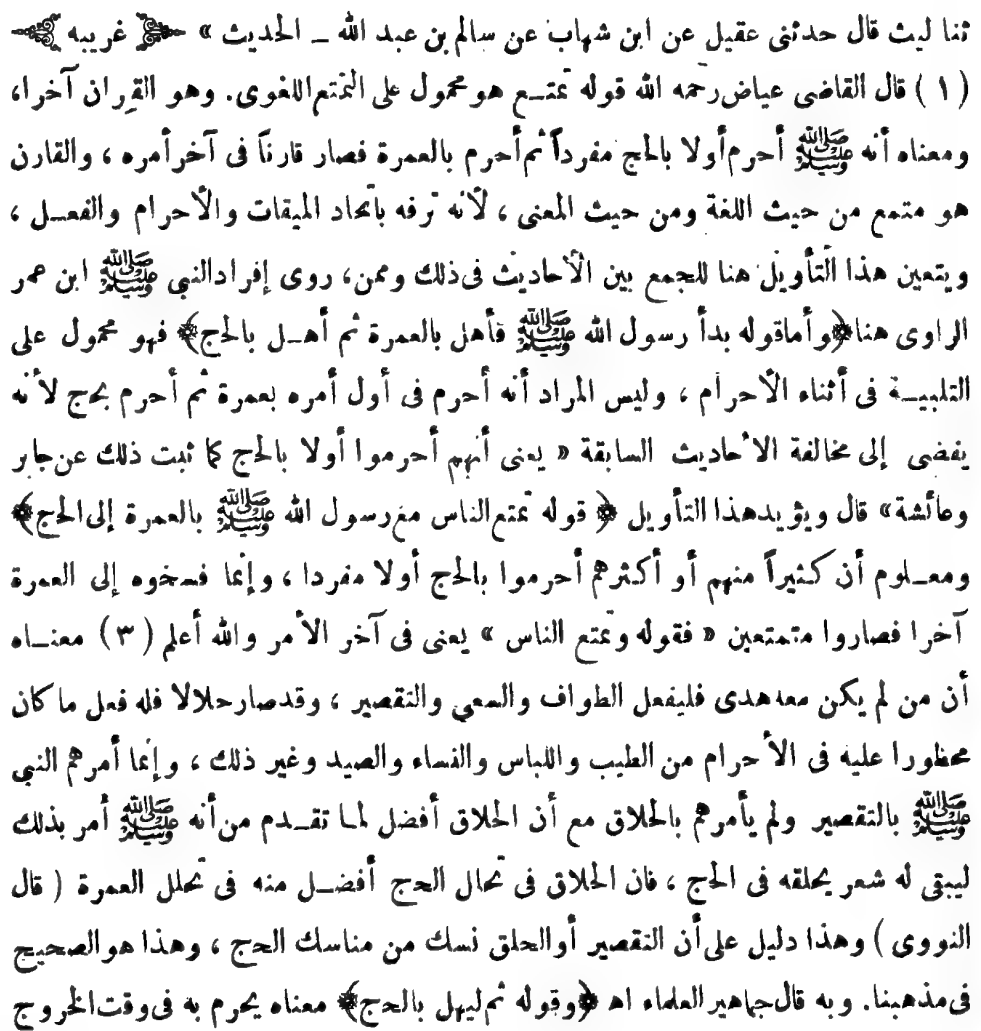 ثنا ليث قال حدثنى عقيل عن ابن شهاب عن سالم بن عبد الله ــ الحديث » غريبه
(١) قال القاضى عياض رحمه الله قوله تمتـع هو محمول على التمتع اللغوى. وهو القِران آخرا،
ومعناه أنه ﷺ أحرم أولا بالحج مفرداً ثم أحرم بالعمرة فصار قارناً فى آخر أمره ، والقارن
هو متمتع من حيث اللغة ومن حيث المعنى ، لأنه ترفه باتحاد الميقات والأحرام والفعـل ،
ويتعين هذا التأويل هنا للجمع بين الأحاديث فى ذلك وممن، روى إفراد النبى ﷺ ابن عمر
الراوى هنا ﴿وأما قوله بدأ رسول الله ﷺ فأهل بالعمرة ثم أهـل بالحج﴾ فهو محمول على
التلبيـة فى أثناء الأحرام ، وليس المراد أنه أحرم فى أول أمره بعمرة ثم أحرم بحج لأنه
يفضى إلى مخالفة الأحاديث السابقة « يعنى أنهم أحرموا أولا بالحج كما ثبت ذلك عن جابر
وعائشة» قال ويؤيد هذا التأويل ﴿ قوله تمتع الناس مع رسول الله ﷺ بالعمرة إلى الحج﴾
ومعـلوم أن كثيراً منهم أو أكثرهم أحرموا بالحج أولا مفردا ، وإنما فسخوه إلى العمرة
آخرا فصاروا متمتعين « فقوله وتمتع الناس » يعنى فى آخر الأمر والله أعلم (٣) معنـاه
أن من لم يكن معه هدى فليفعل الطواف والسعي والتقصير ، وقد صار حلالا فله فعل ما كان
محظورا عليه فى الأحرام من الطيب واللباس والنساء والصيد وغير ذلك ، وإنما أمرهم النبي
ﷺ بالتقصير ولم يأمرهم بالحلاق مع أن الحلاق أفضل لما تقـدم من أنه ﷺ أمر بذلك
ليبقى له شعر يحلقه فى الحج ، فان الحلاق فى تحال الحج أفضـل منه فى تحلل العمرة (قال
النووى) وهذا دليل على أن التقصير أو الحلق نسك من مناسك الحج ، وهذا هو الصحيح
فى مذهبنا. وبه قال جماهير العلماء اهـ ﴿وقوله ثم ليهل بالحج﴾ معناه يحرم به فى وقت الخروج